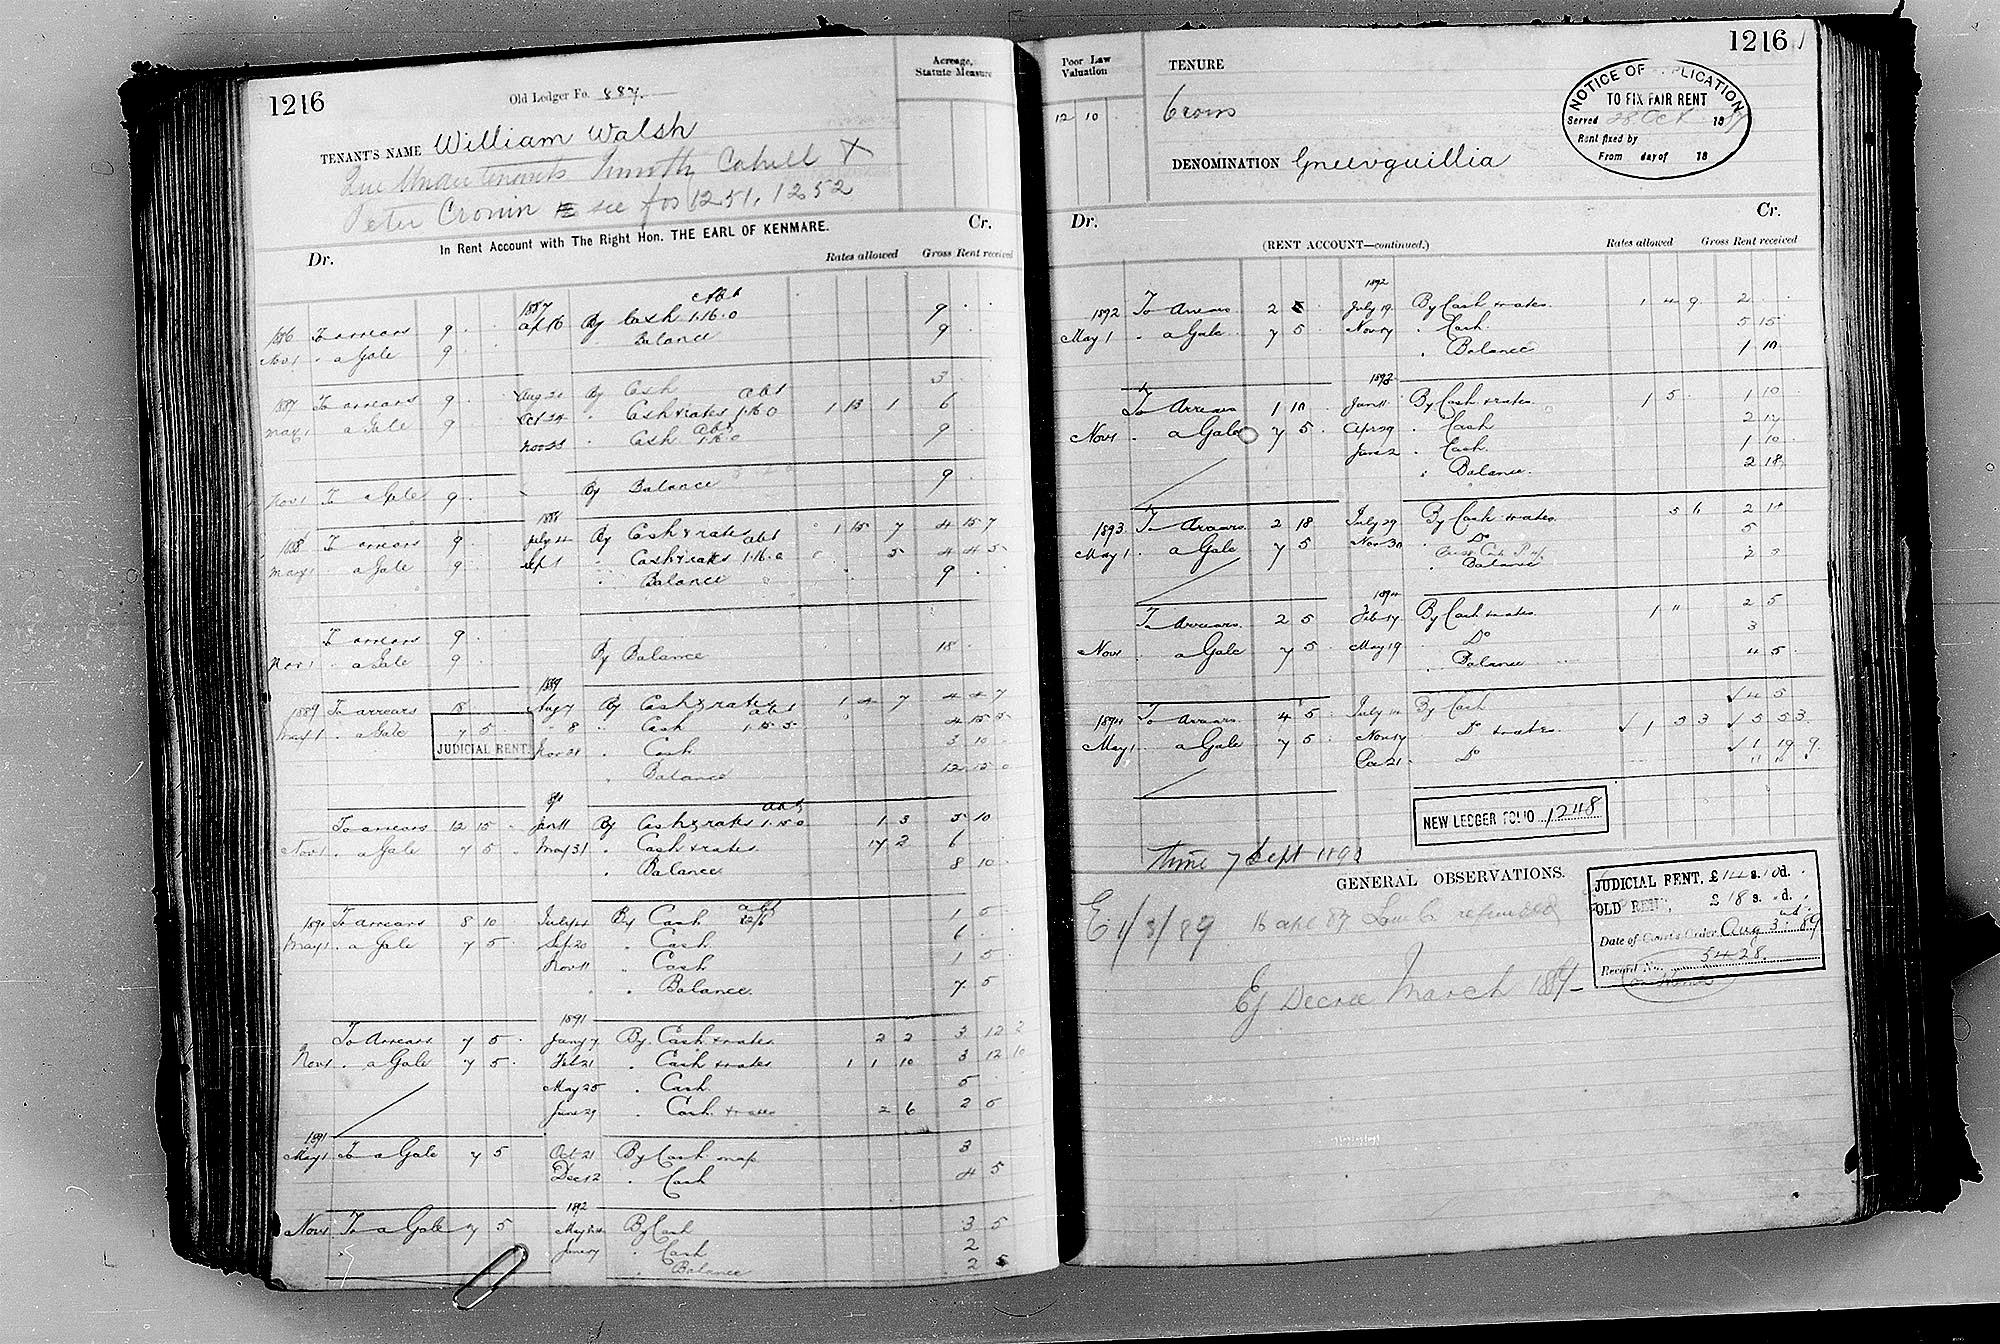 1216
Old Ledger Fo. 887.
Acreage,
Statute Measure
TENANT'S NAME William Walsh
Undertenants Timothy Cahill X
Peter Cronin see fos 1251, 1252
In Rent Account with The Right Hon. THE EARL OF KENMARE.
Dr. Cr.
Rates allowed Gross Rent received
1887 abt
1886 To arrears 9 . . Ap 16 By Cash 1.16.0 9 . .
Nov 1 . a Gale 9 . . Balance 9 . .
1887 To arrears 9 . . Aug 21 By Cash 3 . .
May 1 a Gale 9 . . Oct 24 " Cash & rates abt 1.16.0 1 13 1 6
Nov 28 " Cash abt 1.16.0 9 . .
Nov 1 To a Gale 9 . . By Balance 9 . .
1888
1888 To arrears 9 . . July 4 By Cash & rates 1 15 7 4 15 7
May 1 . a Gale 9 . . Sep 1 Cash & rates abt 1.16.0 5 4 4 5
Balance 9 . .
To arrears 9 . .
Nov 1 . a Gale 9 . . By Balance 18 . .
1889
1889 To arrears 18 Aug 7 By Cash & rates 1 4 7 4 4 7
May 1 . a Gale 7 5 " 8 " Cash abt 1.15.5 4 15 5
JUDICIAL RENT. Nov 28 " Cash 3 10 .
" Balance 12 15 0
1890
To arrears 12 15 . Jan 11 By Cash & rates abt 1.15.0 1 3 5 10
Nov 1 . a Gale 7 5 . May 31 . Cash & rates 17 2 6
. Balance 8 10
1890 To arrears 8 10 July 24 By Cash abt 22/6 1 5 .
May 1 . a Gale 7 5 . Sep 20 " Cash 6 . .
Nov 11 " Cash 1 5 .
. Balance. 7 5
1891
To Arrears 7 5 Jany 7 By Cash & rates 2 2 3 12 2
Nov 1 . a Gale 7 5 . Feb 21 . Cash & rates 1 1 10 3 12 10
May 25 . Cash 5 .
June 29 . Cash & rates 2 6 2 5
1891
May 1 To a Gale 7 5 Oct 21 By Cash 3
Dec 12 . Cash 4 5
1892
Nov 1 To a Gale 7 5 May 24 By Cash 3 5
June 7 . Cash 2
. Balance 2 5
1216
Poor Law
Valuation
12 10
TENURE
DENOMINATION Gneevguillia
NOTICE OF APPLICATION
TO FIX FAIR RENT
Served 28 Oct 1887
Rent fixed by
From day of 18
Dr. Cr.
(RENT ACCOUNT—continued.) Rates allowed Gross Rent received
1892
1892 To Arrears 2 5 . July 19. By Cash & rates. 1 4 9 2 . .
May 1 . a Gale 7 5 . Nov 17 . Cash. 5 15
. Balance 1 10
1893
To Arrears 1 10 . Jan 11 By Cash & rates. 1 5 . 1 10
Nov 1 . a Gale 7 5 . Apr 29 . Cash 2 17
June 2 . Cash. 1 10
. Balance. 2 18
1893 To Arrears. 2 18 July 29 By Cash & rates. 5 6 2 10
May 1 . a Gale 7 5 Nov 30 . Do 5
. Balance
1894
To Arrears. 2 5 Feb 17 By Cash & rates. 1 " 2 5
Nov 1 a Gale 7 5 . May 19 Do 3
. Balance 4 5 .
1894 To Arrears 4 5 July 14 By Cash 4 5
May 1 a Gale 7 5 Nov 17 Do & rates 1 3 3 5 5 3
Dec 21 . Do 1 19 9
NEW LEDGER FOLIO 1248
Time 7 Sept
GENERAL OBSERVATIONS.
JUDICIAL RENT, £14 s. 10 d.
OLD RENT, £18 s. " d.
Date of Court's Order, Aug 3rd 89
Record No. 5428
E 1/8/89 16 Apl 87 Law Cs refunded
Ej Decree March 1887